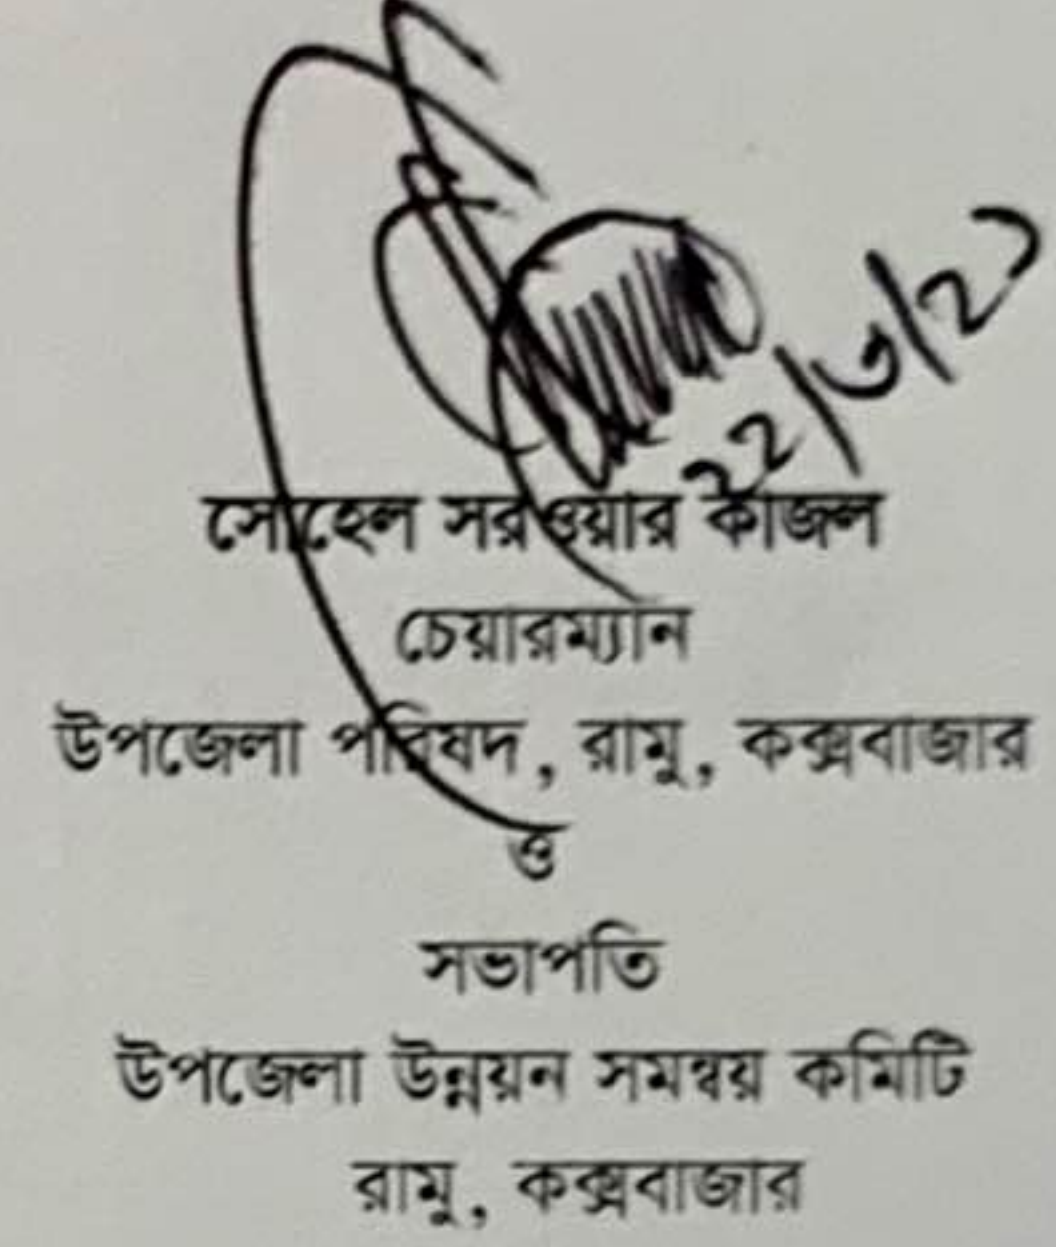 সোহেল সরওয়ার কাজল
চেয়ারম্যান
উপজেলা পরিষদ, রামু, কক্সবাজার
ও
সভাপতি
উপজেলা উন্নয়ন সমন্বয় কমিটি
রামু, কক্সবাজার